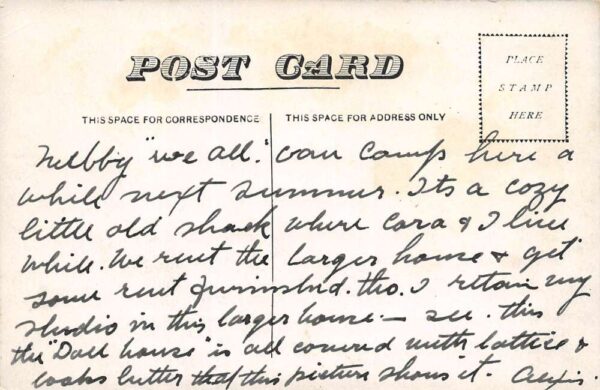 POST CARD
PLACE
STAMP
HERE
THIS SPACE FOR CORRESPONDENCE
THIS SPACE FOR ADDRESS ONLY
"we all." can camp here a
while next summer. Its a cozy
little old shack where Cora & I live
while. We rent the larger house & get
some rent furnished. tho. I retain my
studio in this larger house — see. this
the "Doll house" is all covered with lattice &
looks better that this picture shows it.